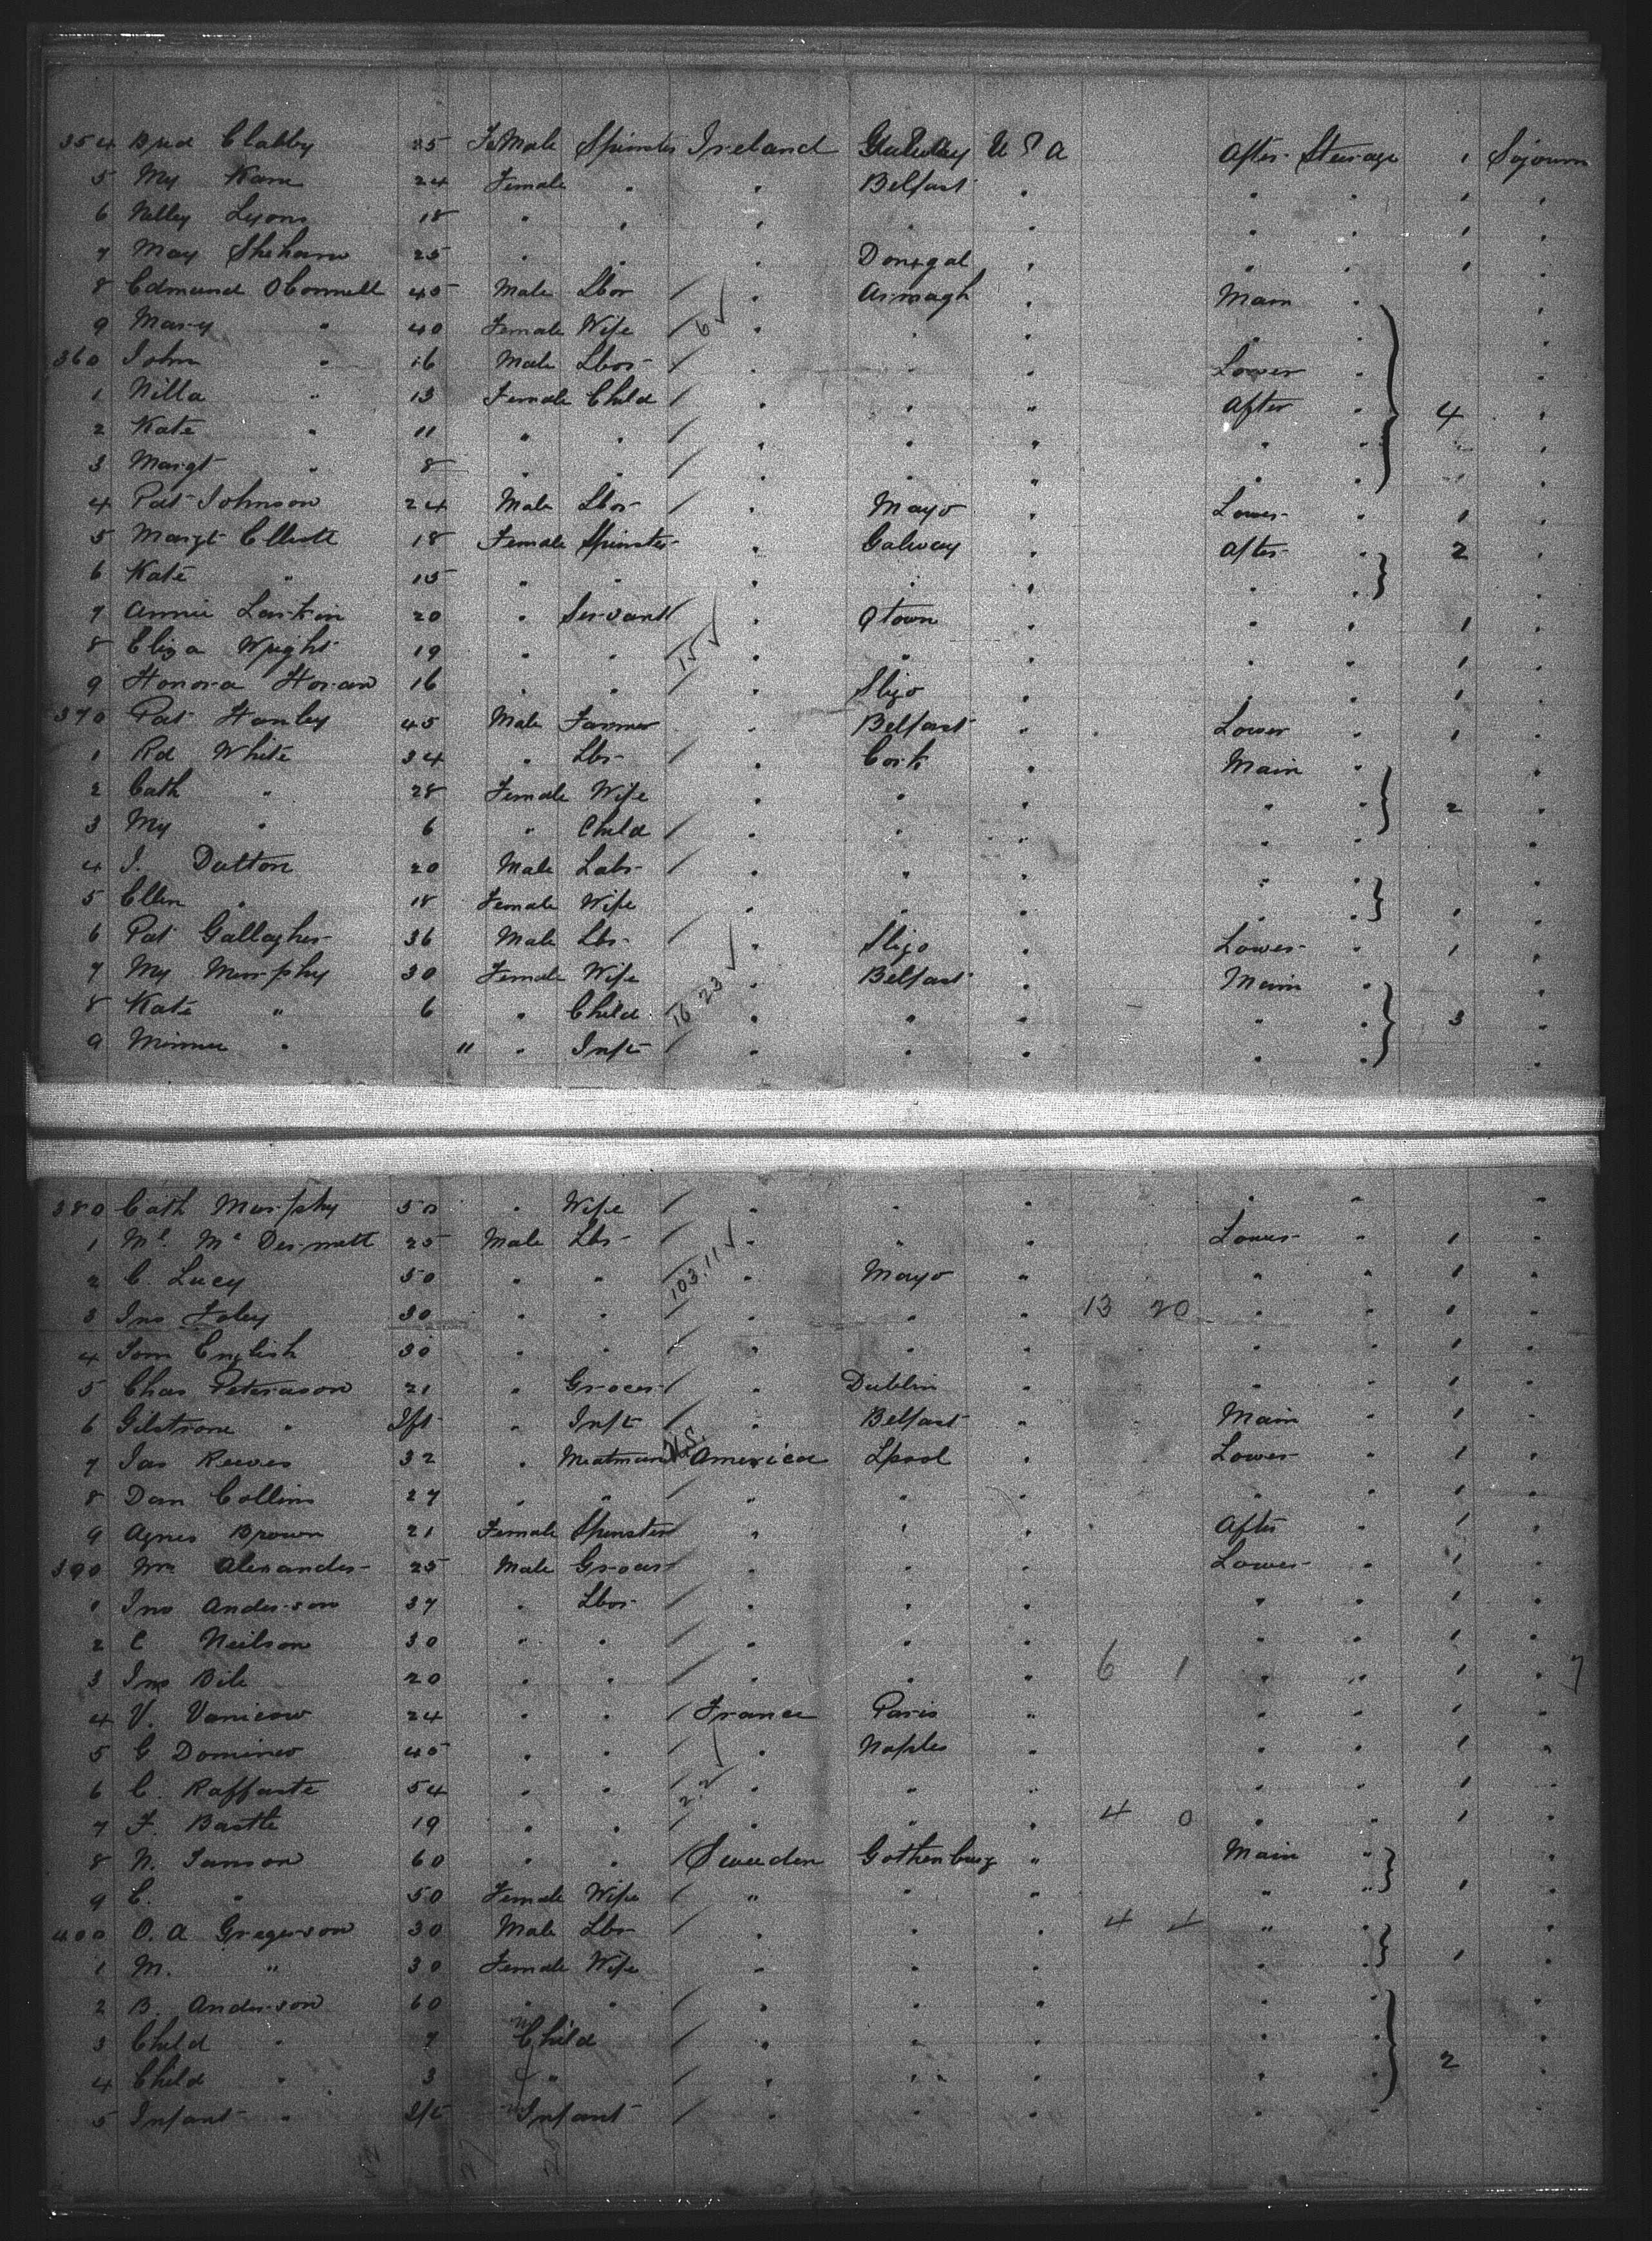 354 Brid Clabby 35 FeMale Spinster Ireland Galway U S A After Steerage 1 Sojourn
5 My Kane 24 Female " " Belfast " " " 1 "
6 Nelley Lyons 18 " " " " " " " 1 "
7 May Shehann 25 " " " Donegal " " " 1 "
8 Edmund O'Connell 45 Male Lbor / " Armagh " Main " "
9 Mary " 40 Female Wife / 6 " " " " " "
360 John " 16 Male Lbor / " " " Lower " "
1 Nilla " 13 Female Child / " " " After " 4 "
2 Kate " 11 " " / " " " " " "
3 Margt " 8 " " / " " " " " "
4 Pat Johnson 24 Male Lbor / " Mayo " Lower " 1 "
5 Margt Elliott 18 Female Spinster " Galway " After " 2 "
6 Kate " 15 " " " " " " " "
7 Annie Larkin 20 " Servant / " Qtown " " " 1 "
8 Eliza Wright 19 " " 15 " " " " " 1 "
9 Honora Horan 16 " " / " Sligo " " " 1 "
370 Pat Hanley 45 Male Farmer " Belfast " Lower " 1 "
1 Rd White 34 " Lbr / " Cork " Main " "
2 Cath " 28 Female Wife " " " " " 2 "
3 My " 6 " Child / " " " " "
4 J. Dutton 20 Male Labr / " " " " " "
5 Ellen " 18 Female Wife " " " " " 1 "
6 Pat Gallagher 36 Male Lbr / " Sligo " Lower " 1 "
7 My Murphy 30 Female Wife " Belfast " Main " "
8 Kate " 6 " Child 16 23 " " " " " 3 "
9 Minnie " " " Inft / " " " " " "
380 Cath Murphy 50 " Wife / " " " " " "
1 Ml. Mc Dermott 25 Male Lbr / " " " Lower " 1 "
2 C. Lucy 50 " " 103.11 " Mayo " " " 1 "
3 Jno Foley 30 " " / " " " 13 20 " " 1 "
4 Tom English 30 " " / " " " " " 1 "
5 Chas Peterason 21 " Grocer / " Dublin " " " 1 "
6 Gilstrone " Ift " Inft / " Belfast " Main " 1 "
7 Jas Reeves 32 " Meatman U.S. America Lpool " Lower " 1 "
8 Dan Collins 27 " " / " " " " " 1 "
9 Agnes Brown 21 Female Spinster " " " After " 1 "
390 Wm Alexander 25 Male Grocer / " " " Lower " 1 "
1 Jno Anderson 37 " Lbor / " " " " " 1 "
2 C Neilson 30 " " / " " " " " 1 "
3 Jno Bile 20 " " / " " " 6 1 " " 1 " 7
4 V. Vanicow 24 " " / France Paris " " " 1 "
5 G Domineo 45 " " / " Naples " " " 1 "
6 C. Raffaste 54 " " / 22 " " " " " 1 "
7 F. Bastle 19 " " / " " " 4 0 " " 1 "
8 N. Janson 60 " " / Sweeden Gothenburg " Main " "
9 C. " 50 Female Wife / " " " " " 1 "
400 O. A Gregerson 30 Male Lbr / " " " 4 4 " " "
1 M. " 30 Female Wife " " " " " 1 "
2 B. Anderson 60 " " / " " " " " "
3 Child " 7 Child / " " " " " "
4 Child " 3 " / " " " " " 2 "
5 Infant " Ift Infant / " " " " " "